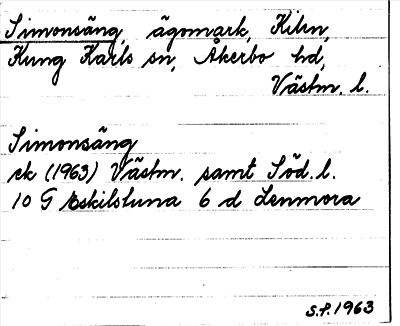 Simonsäng, ägomark, Kilm,
Kung Karls sn, Åkerbo hd,
Västm. l.
Simonsäng
ek (1963) Västm. samt Söd. l.
10 G Eskilstuna 6 d Lenmora
S.P. 1963